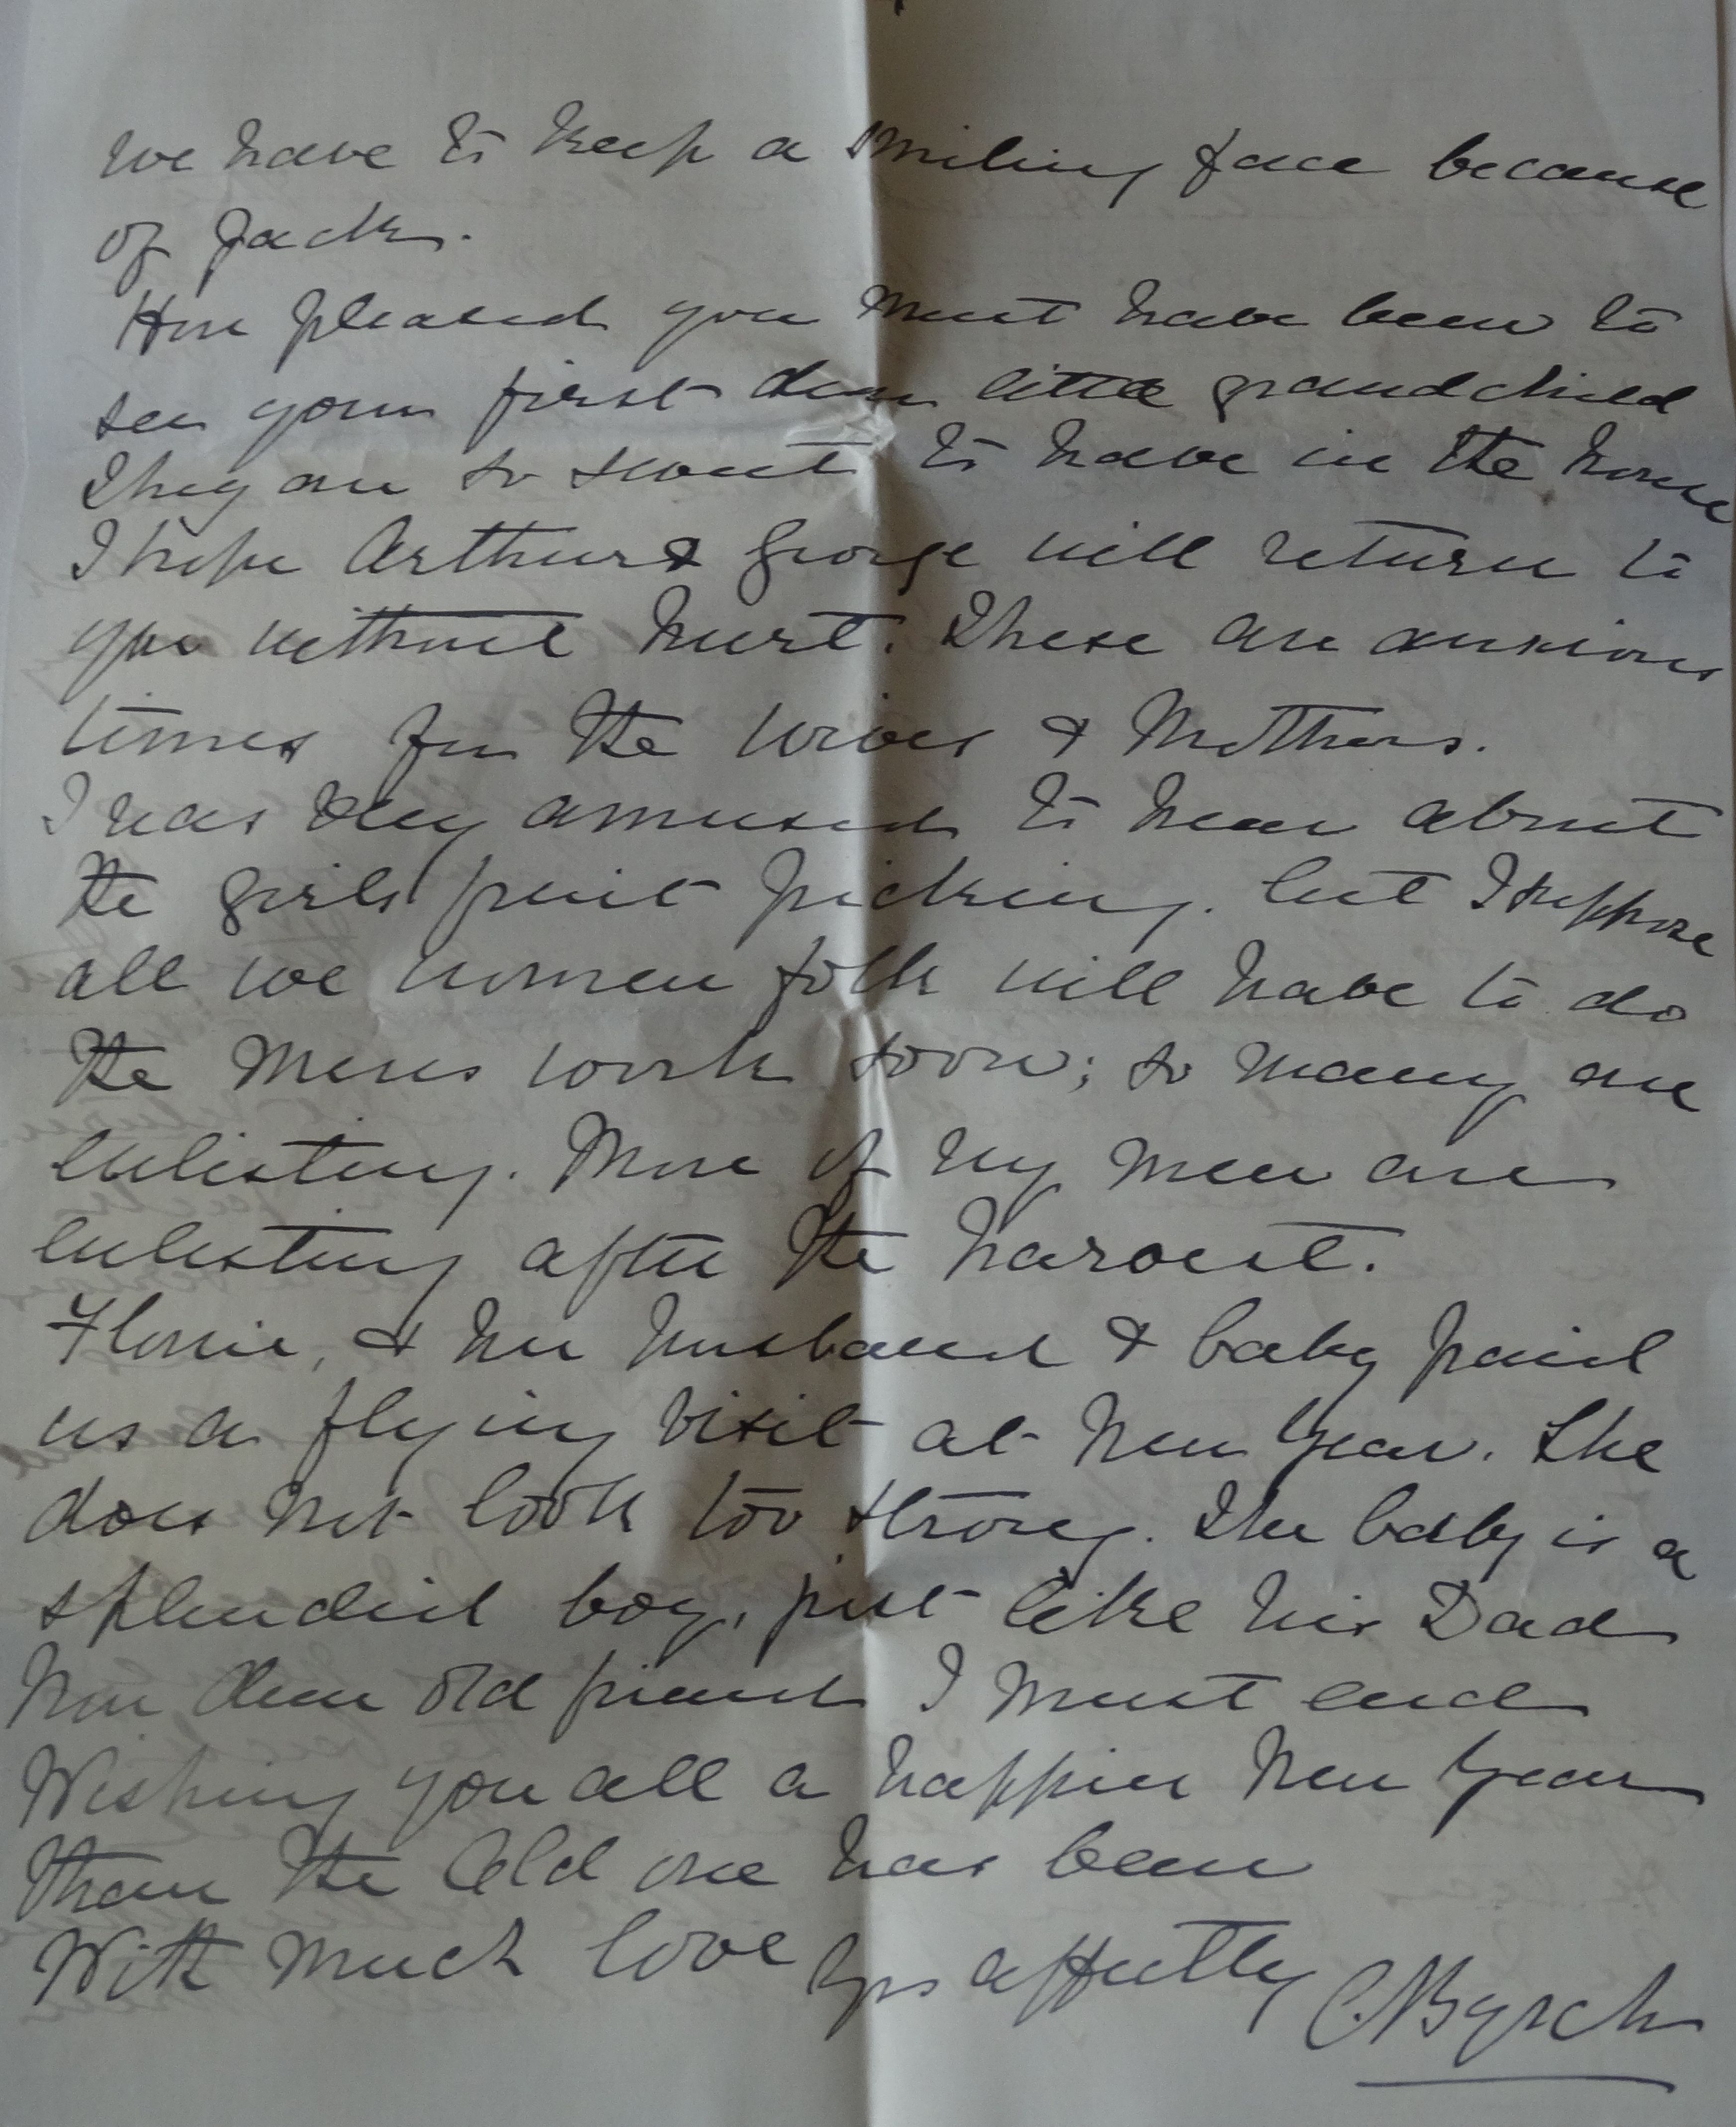 we have to keep a smiling face because
of Jack.
How pleased you must have been to
see your first dear little grandchild
They are so sweet to have in the house
I hope Arthur & George will return to
you without hurt. These are anxious
times for the wives & Mothers.
I was very amused to hear about
the girls fruit picking. but I suppose
all we women folk will have to do
the mens work soon; so many are
enlisting. More of my men are
enlisting after the harvest.
Florrie, & her husband & baby paid
us a flying visit at New Year. She
does not look too strong. The baby is a
splendid boy, just like his Dad
Now dear old friend I must end
Wishing you all a happier New Year
than the Old one has been
With much love Yrs affectly C Byrch